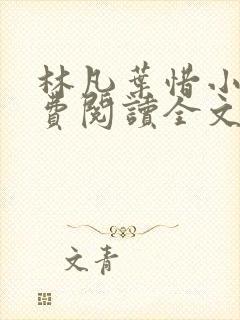 林凡葉惜小
費閱讀全文
文青